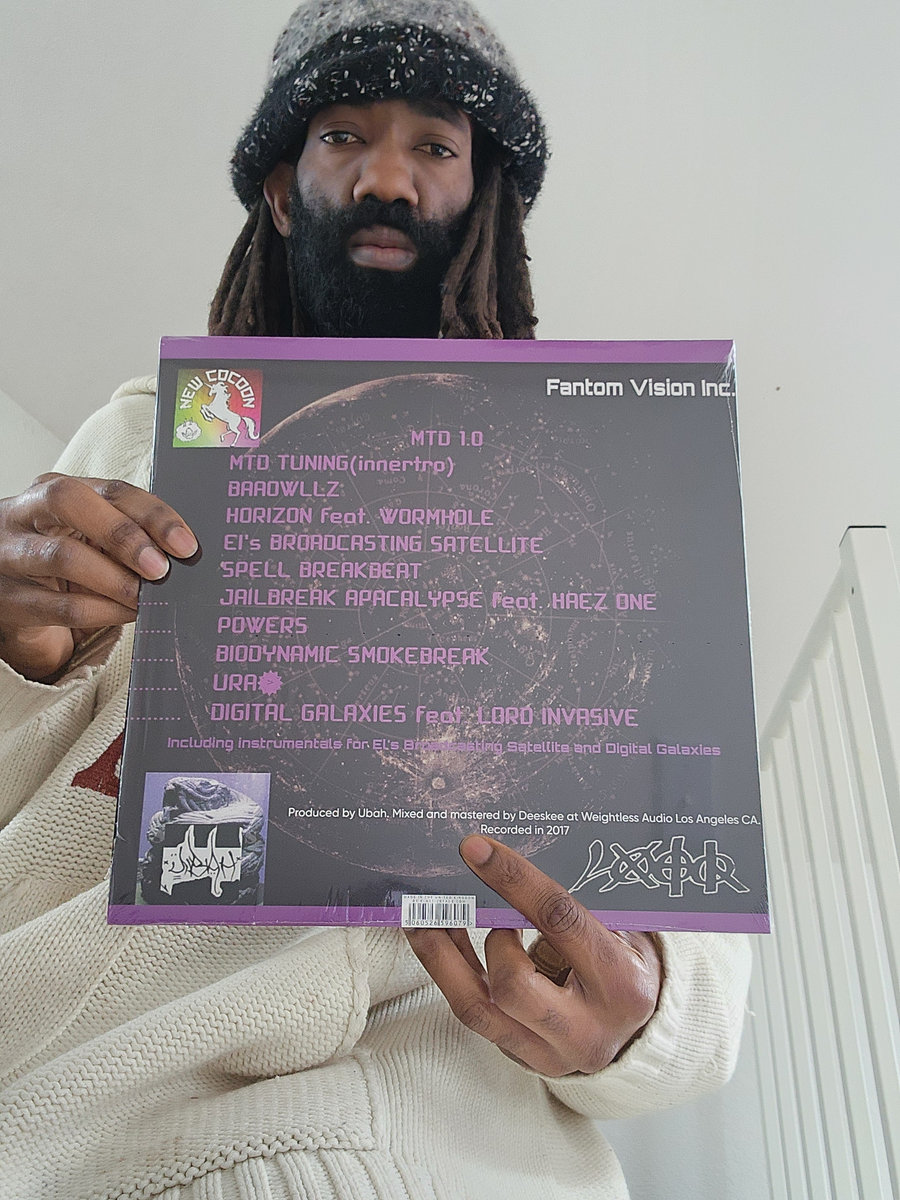 NEW COCOON
Fantom Vision Inc.
MTD 1.0
MTD TUNING(innertro)
BAAOWLLZ
HORIZON feat. WORMHOLE
EI's BROADCASTING SATELLITE
SPELL BREAKBEAT
JAILBREAK APACALYPSE feat. HAEZ ONE
POWERS
BIODYNAMIC SMOKEBREAK
URA
DIGITAL GALAXIES feat. LORD INVASIVE
Including instrumentals for EI's Broadcasting Satellite and Digital Galaxies
UBAH
Produced by Ubah. Mixed and mastered by Deeskee at Weightless Audio Los Angeles CA.
Recorded in 2017
MADE IN THE UNITED KINGDOM
5 060526 596079 >